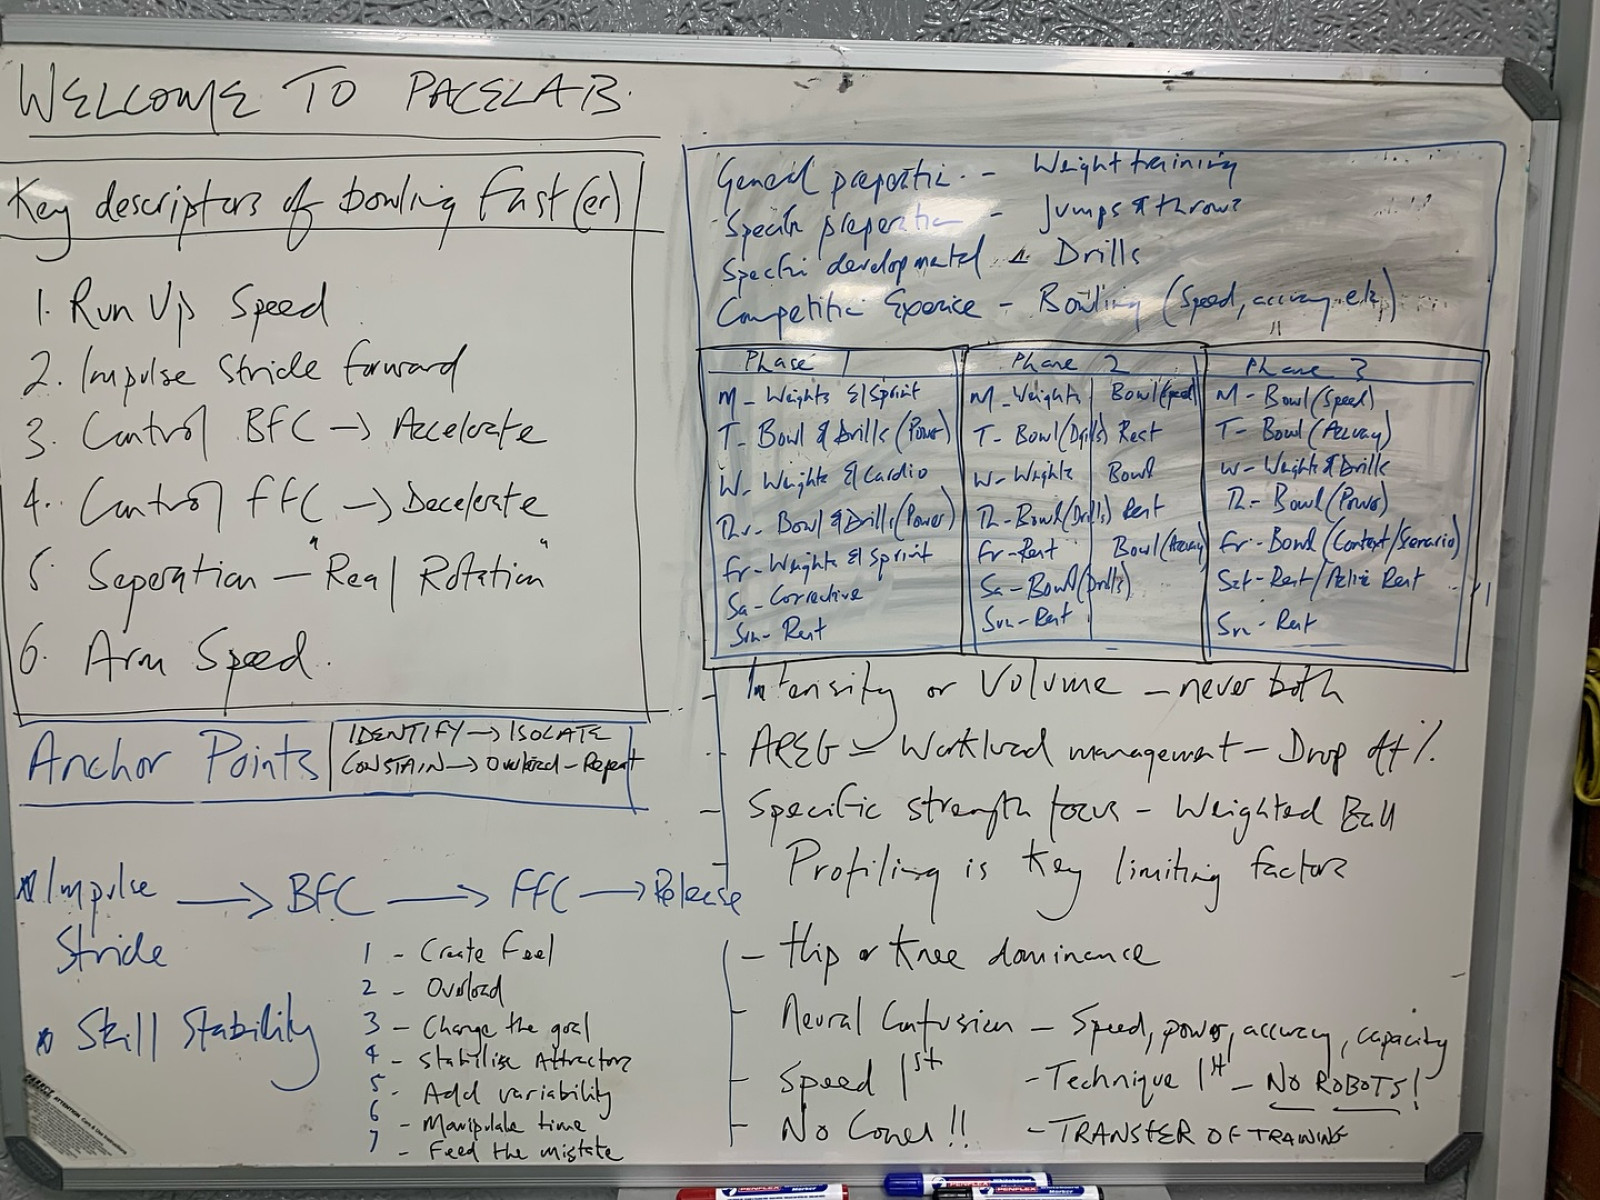 WELCOME TO PACELAB.
Key descriptors of bowling fast(er)
1. Run Up Speed
2. Impulse Stride forward
3. Control BFC → Accelerate
4. Control FFC → Decelerate
5. Seperation - "Real Rotation"
6. Arm Speed.
Anchor Points
IDENTIFY → ISOLATE
CONSTAIN → Overload - Repeat
Impulse Stride → BFC → FFC → Release
Skill Stability
1 - Create Feel
2 - Overload
3 - Change the goal
4 - Stabilise Attractors
5 - Add variability
6 - Manipulate time
7 - Feed the mistake
General preparation - Weight training
Specific preparation - Jumps & throws
Specific developmental - Drills
Competitive Exercise - Bowling (Speed, accuracy etc)
Phase 1
M - Weights & Sprint
T - Bowl & Drills (Power)
W - Weights & Cardio
Thu - Bowl & Drills (Power)
Fr - Weights & Sprint
Sa - Corrective
Sun - Rest
Phase 2
M - Weights Bowl (Speed)
T - Bowl (Drills) Rest
W - Weights Bowl
Th - Bowl (Drills) Rest
Fr - Rest Bowl (Accuracy)
Sa - Bowl (Drills)
Sun - Rest
Phase 3
M - Bowl (Speed)
T - Bowl (Accuracy)
W - Weights & Drills
Th - Bowl (Power)
Fr - Bowl (Context/Scenario)
Sat - Rest/Active Rest
Sun - Rest
- Intensity or Volume - never both
- AREG - Workload management - Drop off %
- Specific strength focus - Weighted Ball
- Profiling is Key limiting factors
- Hip or Knee dominance
- Neural Confusion - Speed, power, accuracy, capacity
- Speed 1st - Technique 1st - NO ROBOTS!
- No Cones!! - TRANSFER OF TRAINING
PENFLEX Marker
PENFLEX Whiteboard Marker
PENFLEX Marker